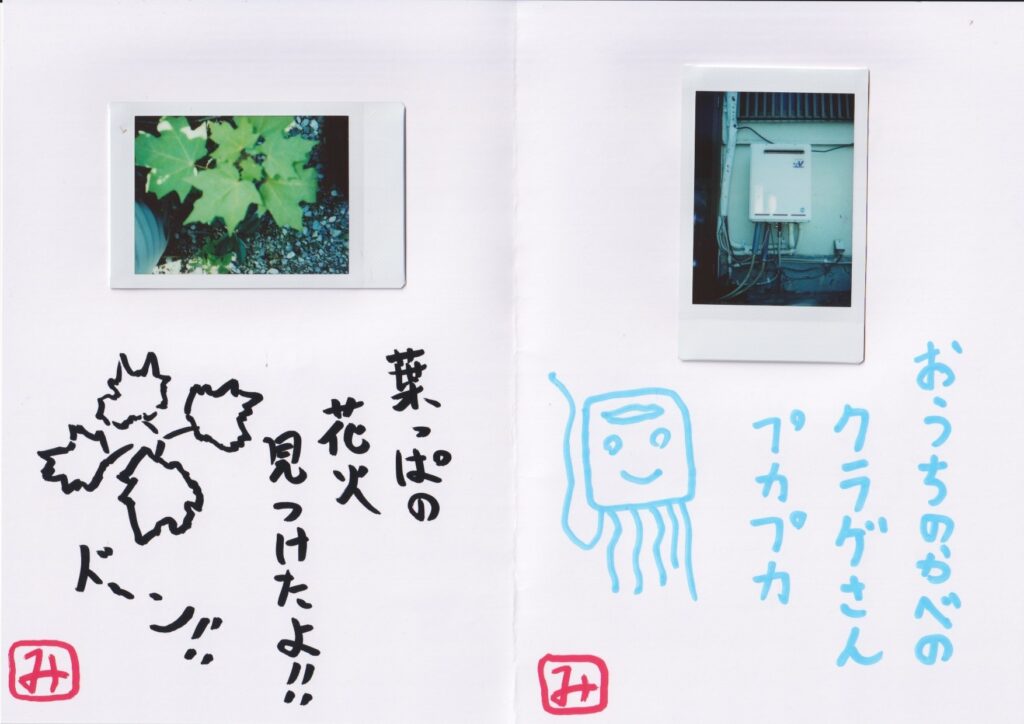 おうちのかべの
クラゲさん
プカプカ
み
葉っぱの
花火
見つけたよ!!
ドーン!!
み